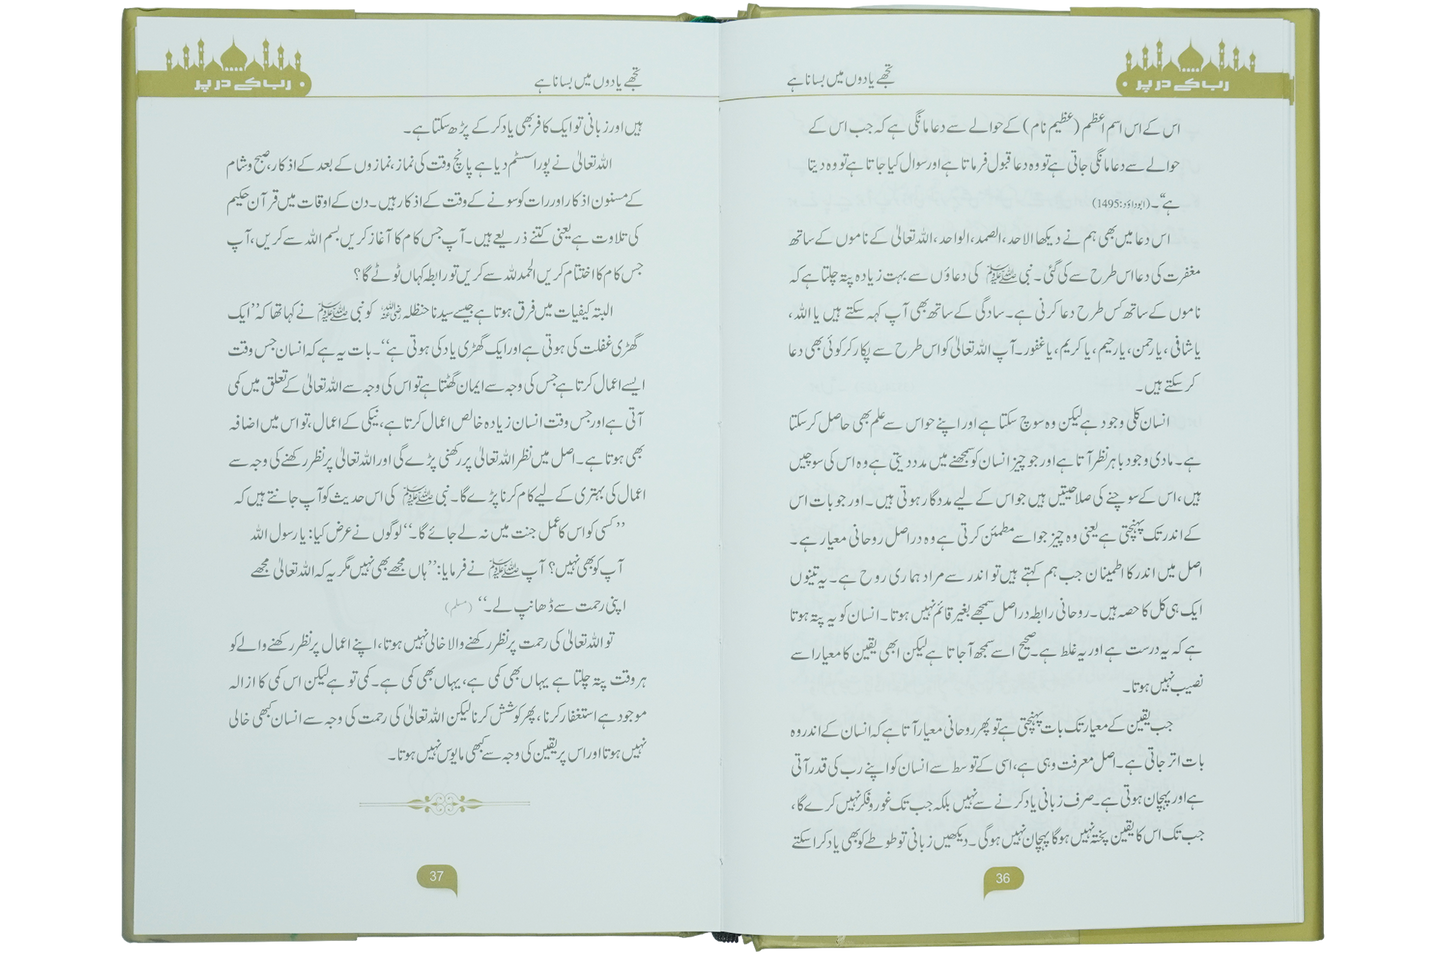 رب کے در پر
تجھے یادوں میں بسانا ہے
اس کے اس اسم اعظم (عظیم نام) کے حوالے سے دعا مانگی ہے کہ جب اس کے
حوالے سے دعا مانگی جاتی ہے تو وہ دعا قبول فرماتا ہے اور سوال کیا جاتا ہے تو وہ دیتا
ہے“۔ (ابوداؤد:1495)
اس دعا میں بھی ہم نے دیکھا الاحد، الصمد، الواحد، اللہ تعالیٰ کے ناموں کے ساتھ
مغفرت کی دعا اس طرح سے کی گئی۔ نبی ﷺ کی دعاؤں سے بہت زیادہ پتہ چلتا ہے کہ
ناموں کے ساتھ کس طرح دعا کرنی ہے۔ سادگی کے ساتھ بھی آپ کہہ سکتے ہیں یا اللہ،
یا شافی، یا رحمن، یا رحیم، یا کریم، یا غفور۔ آپ اللہ تعالیٰ کو اس طرح سے پکار کر کوئی بھی دعا
کر سکتے ہیں۔
انسان کلی وجود ہے لیکن وہ سوچ سکتا ہے اور اپنے حواس سے علم بھی حاصل کر سکتا
ہے۔ مادی وجود باہر نظر آتا ہے اور جو چیز انسان کو سمجھنے میں مدد دیتی ہے وہ اس کی سوچیں
ہیں، اس کے سوچنے کی صلاحیتیں ہیں جو اس کے لیے مددگار ہوتی ہیں۔ اور جو بات اس
کے اندر تک پہنچتی ہے یعنی وہ چیز جو اسے مطمئن کرتی ہے وہ دراصل روحانی معیار ہے۔
اصل میں اندر کا اطمینان جب ہم کہتے ہیں تو اندر سے مراد ہماری روح ہے۔ یہ تینوں
ایک ہی کل کا حصہ ہیں۔ روحانی رابطہ دراصل سمجھے بغیر قائم نہیں ہوتا۔ انسان کو یہ پتہ ہوتا
ہے کہ یہ درست ہے اور یہ غلط ہے۔ صحیح اسے سمجھ آجاتا ہے لیکن ابھی یقین کا معیار اسے
نصیب نہیں ہوتا۔
جب یقین کے معیار تک بات پہنچتی ہے تو پھر روحانی معیار آتا ہے کہ انسان کے اندر وہ
بات اتر جاتی ہے۔ اصل معرفت وہی ہے، اسی کے توسط سے انسان کو اپنے رب کی قدر آتی
ہے اور پہچان ہوتی ہے۔ صرف زبانی یاد کرنے سے نہیں بلکہ جب تک غور و فکر نہیں کرے گا،
جب تک اس کا یقین پختہ نہیں ہوگا پہچان نہیں ہوگی۔ دیکھیں زبانی تو طوطے کو بھی یاد کرا سکتے
36
تجھے یادوں میں بسانا ہے
رب کے در پر
ہیں اور زبانی تو ایک کافر بھی یاد کر کے پڑھ سکتا ہے۔
اللہ تعالیٰ نے پورا سسٹم دیا ہے پانچ وقت کی نماز، نمازوں کے بعد کے اذکار، صبح و شام
کے مسنون اذکار اور رات کو سونے کے وقت کے اذکار ہیں۔ دن کے اوقات میں قرآن حکیم
کی تلاوت ہے یعنی کتنے ذریعے ہیں۔ آپ جس کام کا آغاز کریں بسم اللہ سے کریں، آپ
جس کام کا اختتام کریں الحمدللہ سے کریں تو رابطہ کہاں ٹوٹے گا؟
البتہ کیفیات میں فرق ہوتا ہے جیسے سیدنا حنظلہ رضی اللہ عنہ کو نبی ﷺ نے کہا تھا کہ ”ایک
گھڑی غفلت کی ہوتی ہے اور ایک گھڑی یاد کی ہوتی ہے“۔ بات یہ ہے کہ انسان جس وقت
ایسے اعمال کرتا ہے جس کی وجہ سے ایمان گھٹتا ہے تو اس کی وجہ سے اللہ تعالیٰ کے تعلق میں کمی
آتی ہے اور جس وقت انسان زیادہ خالص اعمال کرتا ہے، نیکی کے اعمال، تو اس میں اضافہ
بھی ہوتا ہے۔ اصل میں نظر اللہ تعالیٰ پر رکھنی پڑے گی اور اللہ تعالیٰ پر نظر رکھنے کی وجہ سے
اعمال کی بہتری کے لیے کام کرنا پڑے گا۔ نبی ﷺ کی اس حدیث کو آپ جانتے ہیں کہ
”کسی کو اس کا عمل جنت میں نہ لے جائے گا۔“ لوگوں نے عرض کیا: یا رسول اللہ
آپ کو بھی نہیں؟ آپ ﷺ نے فرمایا: ”ہاں مجھے بھی نہیں مگر یہ کہ اللہ تعالیٰ مجھے
اپنی رحمت سے ڈھانپ لے۔“ (مسلم)
تو اللہ تعالیٰ کی رحمت پر نظر رکھنے والا خالی نہیں ہوتا، اپنے اعمال پر نظر رکھنے والے کو
ہر وقت پتہ چلتا ہے یہاں بھی کمی ہے، یہاں بھی کمی ہے۔ کمی تو ہے لیکن اس کمی کا ازالہ
موجود ہے استغفار کرنا، پھر کوشش کرنا لیکن اللہ تعالیٰ کی رحمت کی وجہ سے انسان کبھی خالی
نہیں ہوتا اور اس پر یقین کی وجہ سے کبھی مایوس نہیں ہوتا۔
37